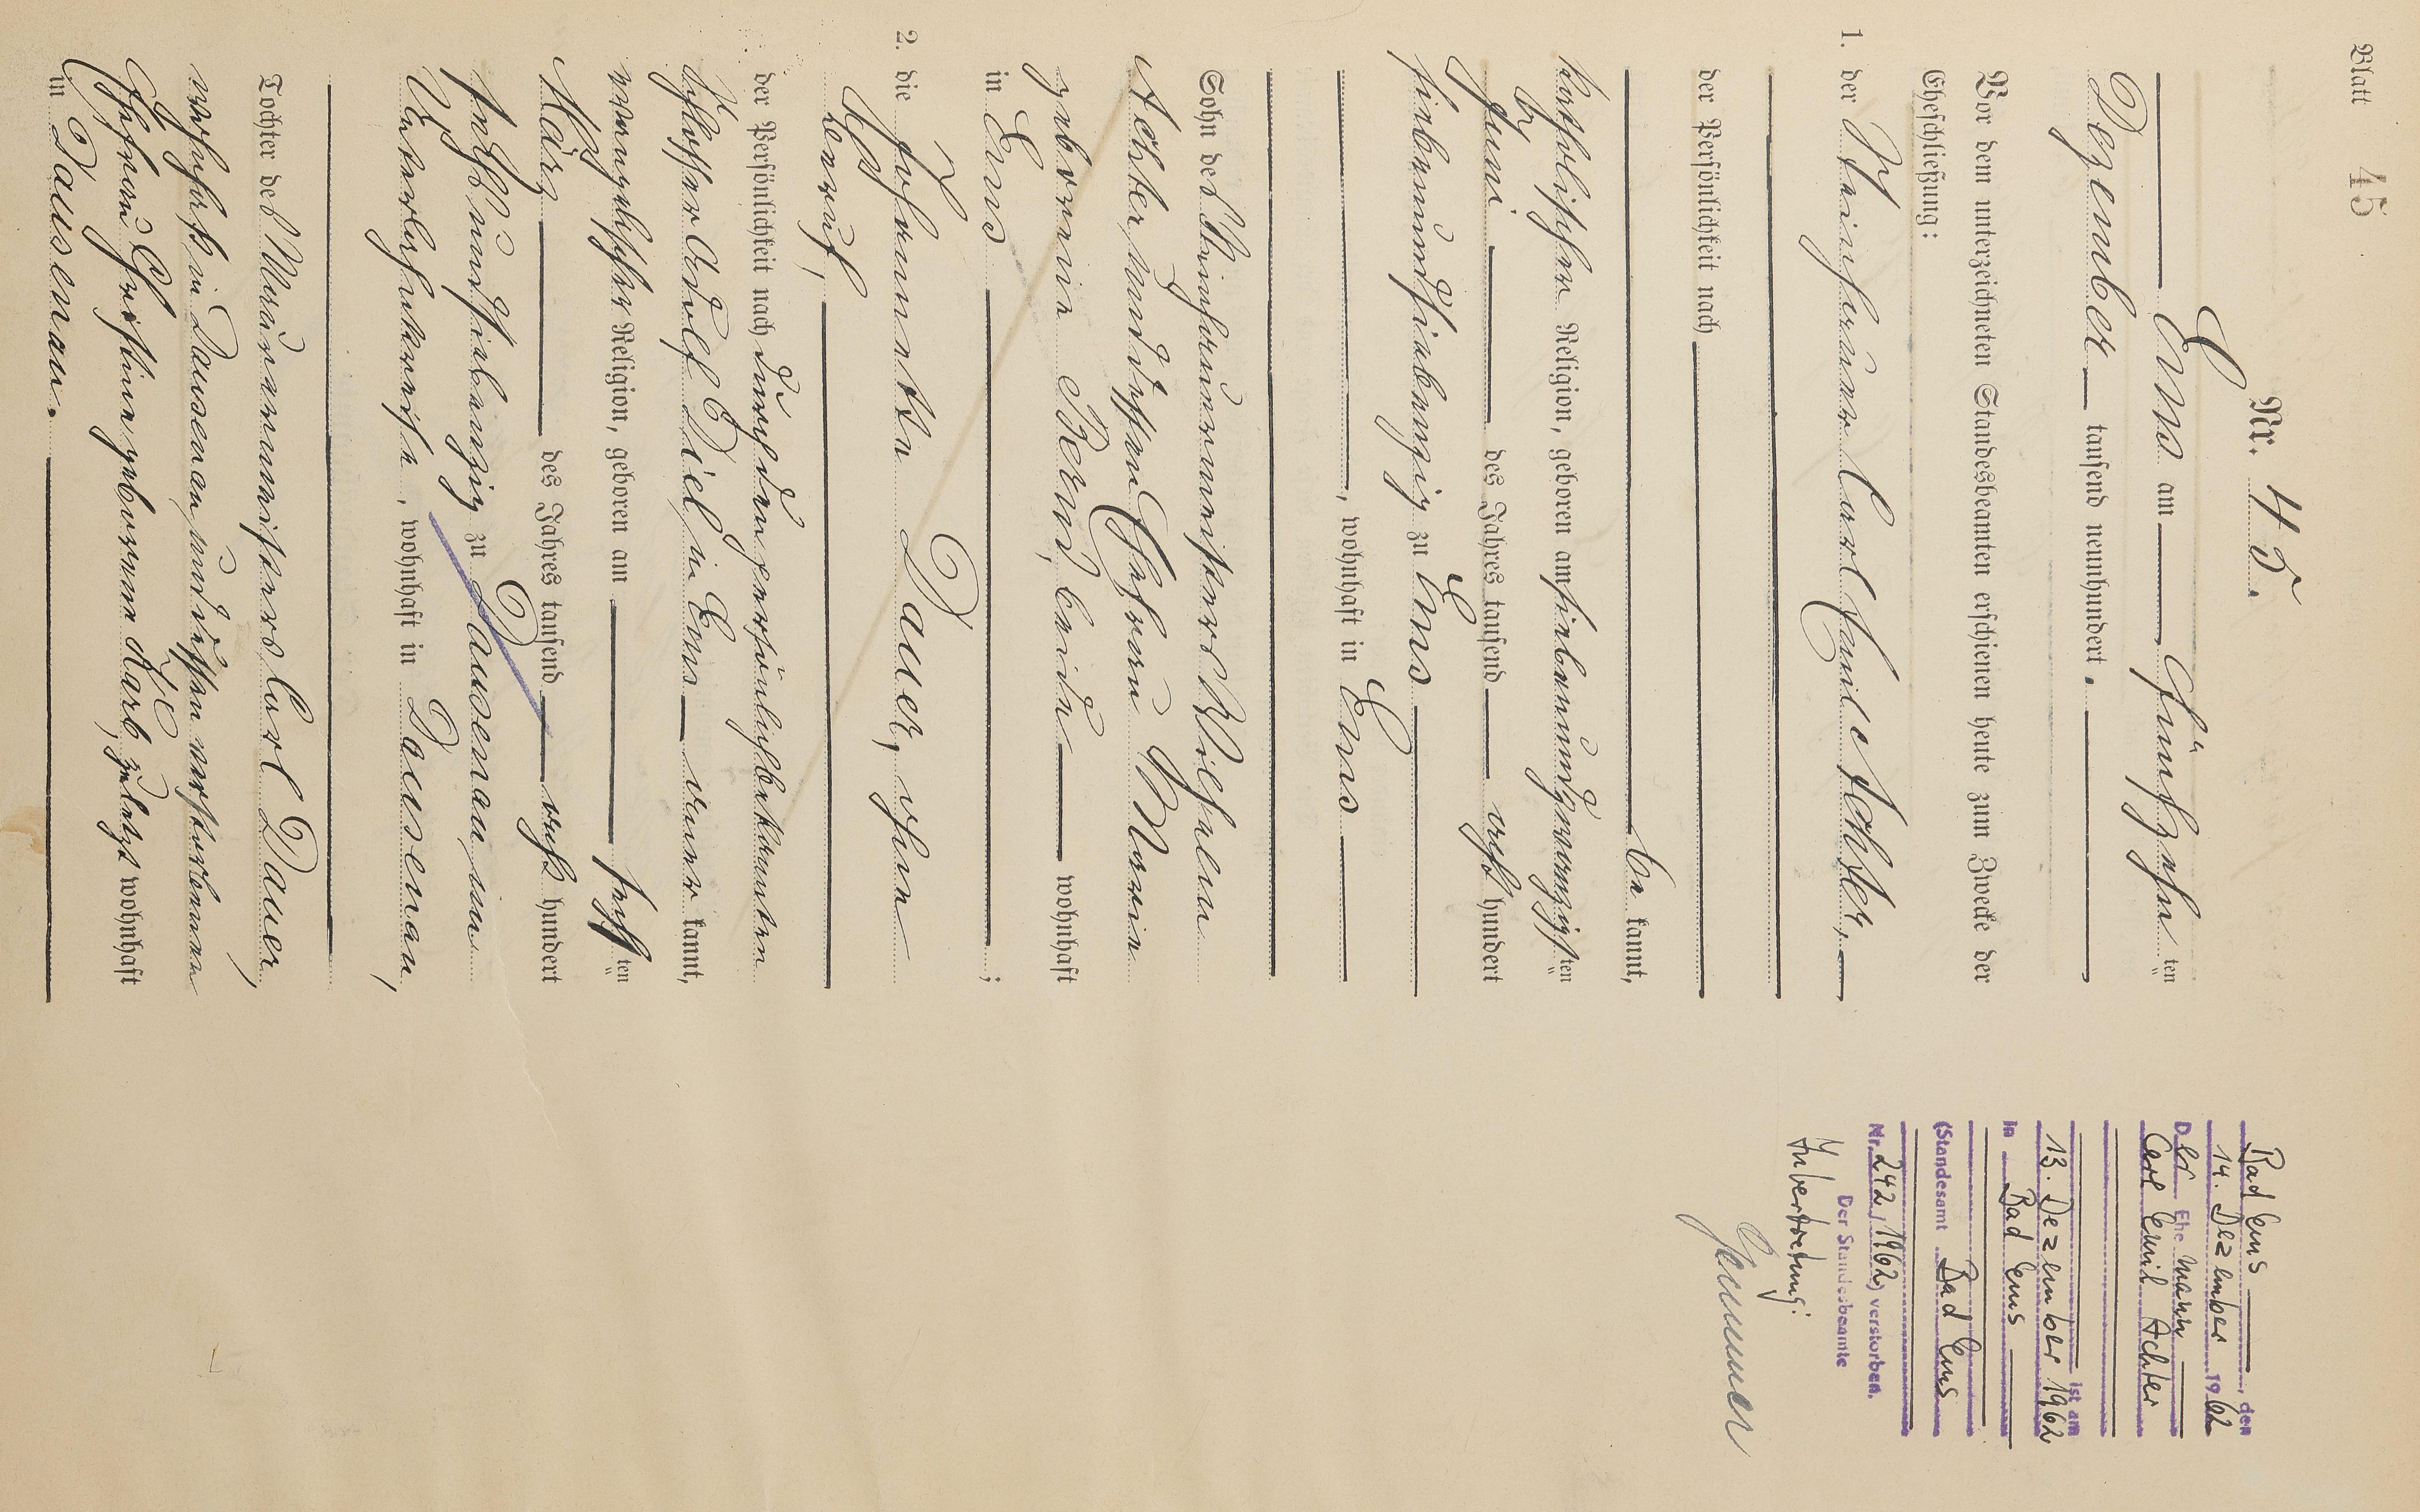 Blatt 45
Nr. 45.
Ems am fünfzehn ten
Dezember tausend neunhundert.
Vor dem unterzeichneten Standesbeamten erschienen heute zum Zwecke der
Eheschließung:
1. der Steinhauer Carl Emil Achter,
der Persönlichkeit nach
be kannt,
katholischer Religion, geboren am siebenundzwanzigsten
Juni des Jahres tausend acht hundert
siebenundsiebenzig zu Ems
, wohnhaft in Ems
Sohn des Steinhauermeisters Wilhelm
Achter und dessen Ehefrau Maria
geborenen Bernd, beide wohnhaft
in Ems ;
2. die Johannette Dauer, ohne
Beruf,
der Persönlichkeit nach durch den persönlich bekannten
Schlosser Adolf Diel in Ems aner kannt,
evangelischer Religion, geboren am sechsten
März des Jahres tausend acht hundert
sechsundsiebenzig zu Dausenau im
Unterlahnkreise, wohnhaft in Dausenau,
Tochter des Maurermeisters Carl Dauer,
wohnhaft in Dausenau und dessen verstorbenen
Ehefrau Christine geborenen Karb, zuletzt wohnhaft
in Dausenau.
Bad Ems, den
14. Dezember 1962
Der Ehemann
Carl Emil Achter
ist am
13. Dezember 1962
in Bad Ems
(Standesamt Bad Ems
Nr. 242/1962) verstorben.
Der Standesbeamte
In Vertretung: